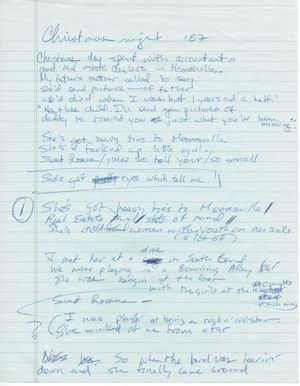 Christmas night '87
Christmas day spent with accountants
and real estate dealers in Mooresville.
My fathers mother called to say
she'd send pictures — of father
He'd died when I was but 1 years and a half.
"Now dear child I'll send you pictures of
daddy to remind you of just what you've been missing"
She's got heavy ties to Mooresville
She's a fucked up little girl.
Sweet Rosene/you're so tall your/so small
She's got eyes which tell me
1
She's got heavy ties to Mooresville/
Real Estate state of mind//
She's woman with youth on her side
(a lot of)
dive
I met her at a in South Bend
We were playing in a Bowling Alley Bar
She was hangin at the bar
with the girls at the
Sweet Rosene —
? (I was playin' at being a rockin' rollster
She winked at me from afar
So when the band was tearin'
down and she finally came around